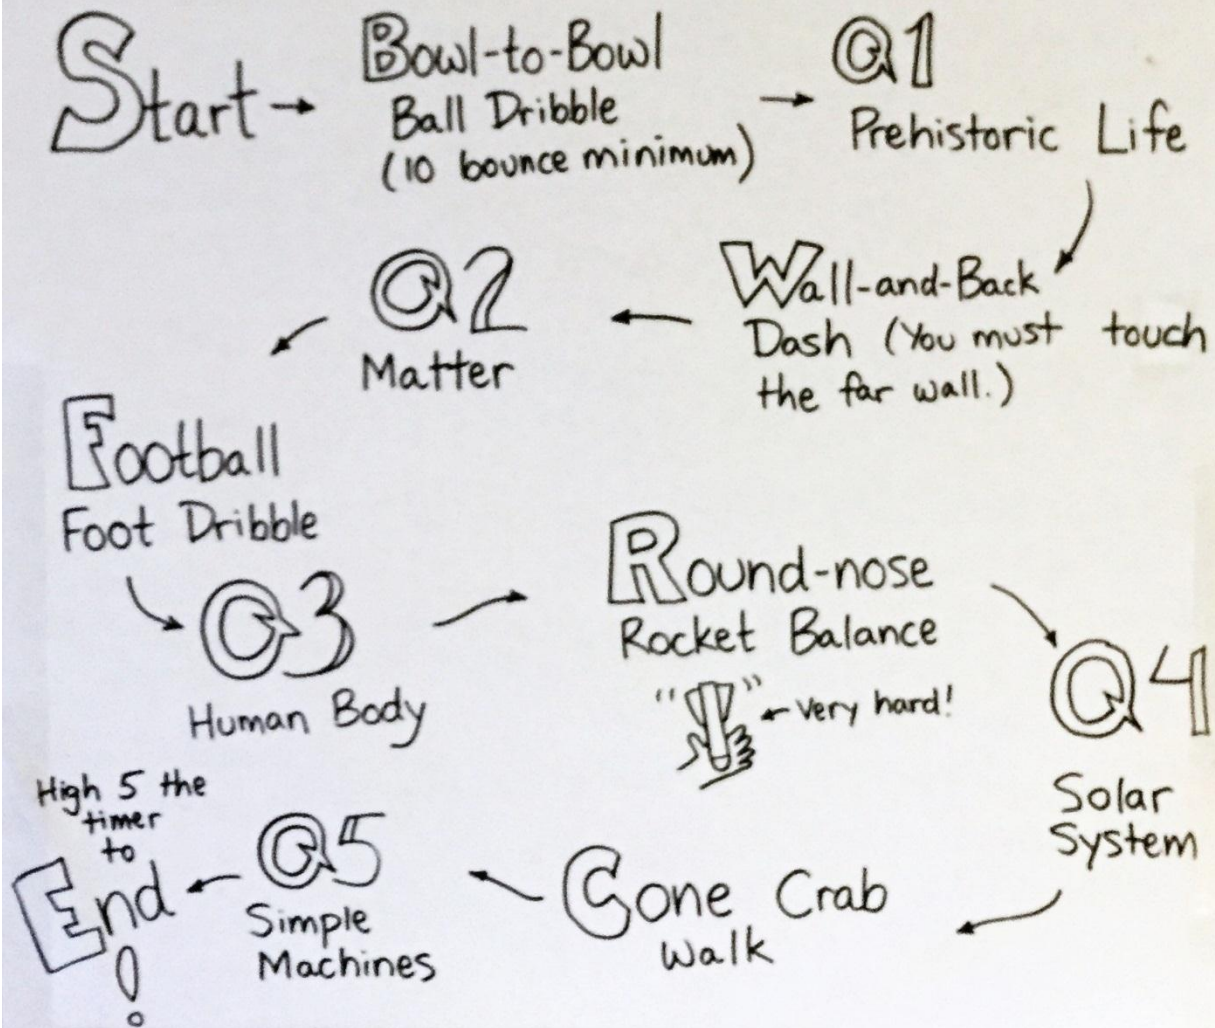 Start
Bowl-to-Bowl
Ball Dribble
(10 bounce minimum)
Q1
Prehistoric Life
Wall-and-Back
Dash (You must touch
the far wall.)
Q2
Matter
Football
Foot Dribble
Q3
Human Body
Round-nose
Rocket Balance
very hard!
Q4
Solar
System
Cone Crab
Walk
Q5
Simple
Machines
High 5 the
timer
to
End!